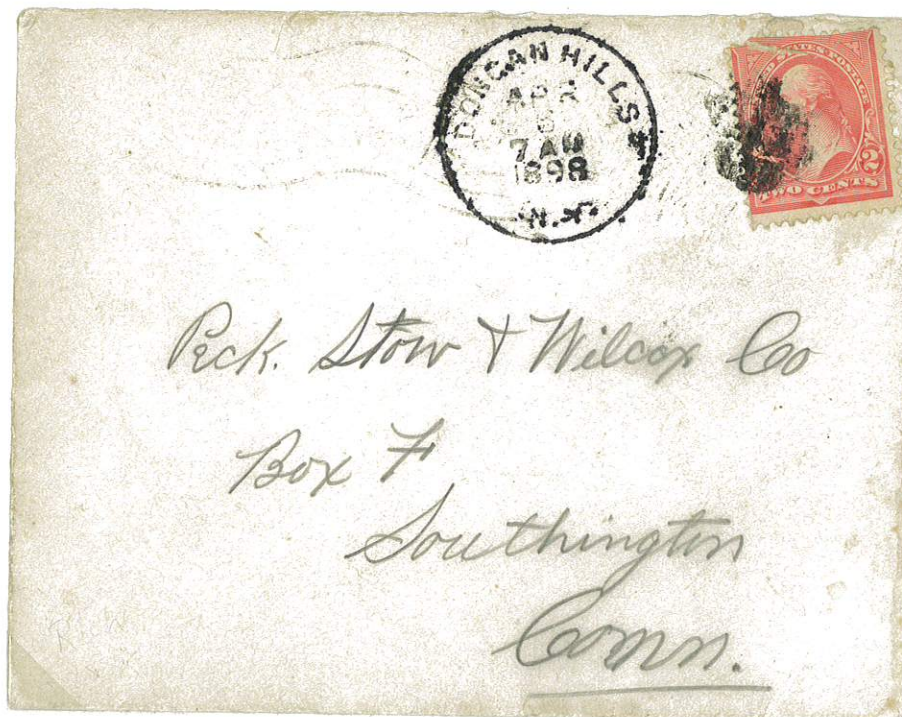 DUNCAN HILLS
APR
5
7 AM
1898
N.Y.
UNITED STATES POSTAGE
2
TWO CENTS
Peck. Stow & Wilcox Co
Box F
Southington
Conn.